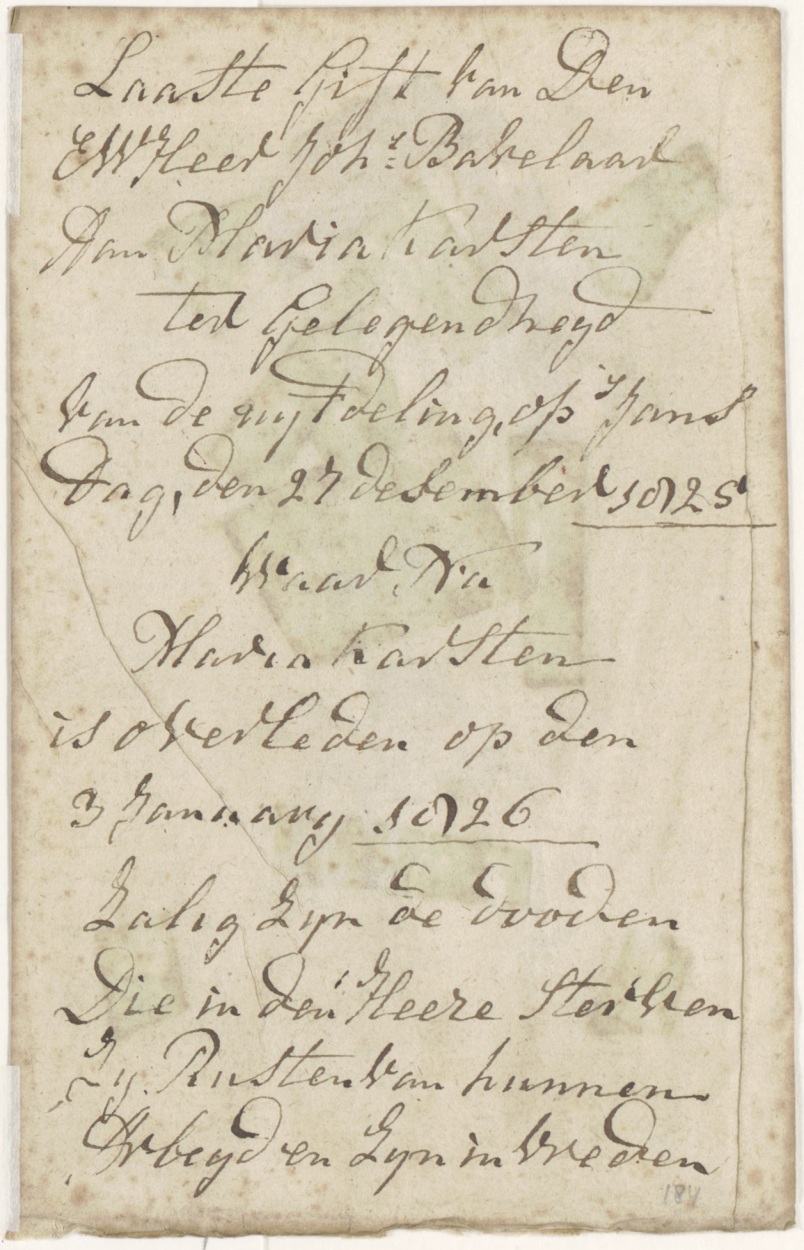 Laaste Gift van Den
EWHeer Johs: Bakelaar
Aan Maria Karsten
ter Gelegendheyd
van de uytdeling, op s Jans
dag, den 27 desember 1825
waar Na
Maria Karsten
is overleden op den
3 January 1826
Zalig Zyn de dooden
Die in den Heere Sterven
Zy Rusten van hunnen
Arbeyd en Zyn in vreden
184